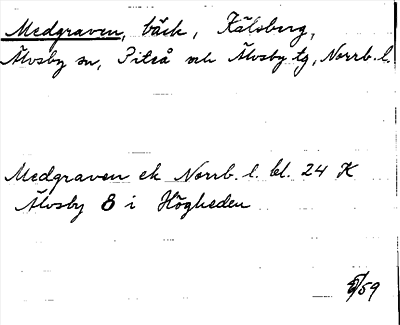 Medgraven, bäck, Kälsberg,
Älvsby sn, Piteå och Älvsby tg, Norrb. l.
Medgraven ek Norrb. l. bl. 24 K
Älvsby 8 i Högheden
/59